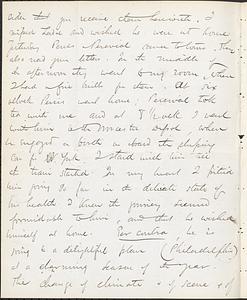 sider that you receive them herewith. I
enjoyed and wished he were at home
Perceval
also read your letter. In the middle of
the afternoon they went to my room, where
I had for them. At six
o'clock went home; Perceval took
tea with me and at 7 o'clock I went
with him to the Worcester Depot, where
he enjoyed a berth on board the sleeping
car for N. York. I staid with him till
the train started. In my heart I pitied
him going so far in the delicate state of
his health. I knew the journey seemed
formidable to him, and that he wished
himself at home. Per contra, he is
going to a delightful place (Philadelphia)
at a charming season of the year.
The change of climate & of scene & of